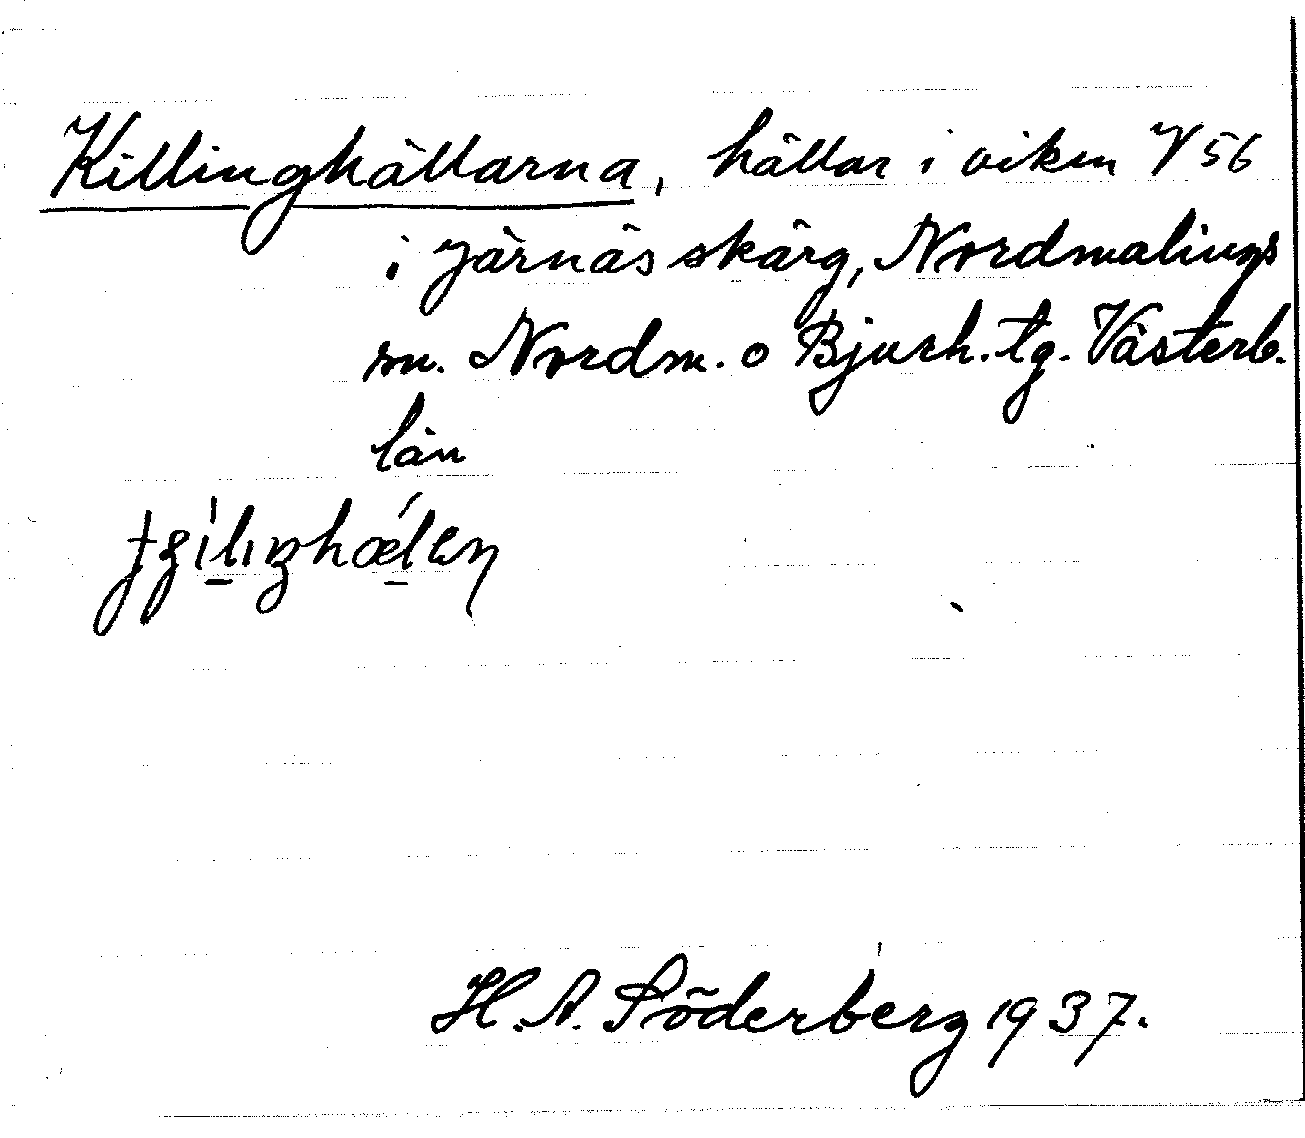 Killinghällarna, hällar i viken V 56
i Järnäs skärg, Nordmalings
sn. Nordm. o Bjurh. tg. Västerb.
län
H. A. Söderberg 1937.